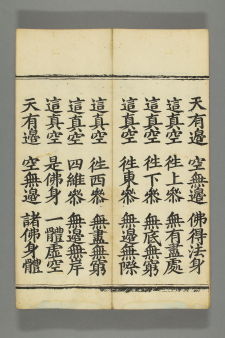 天有邊　空無邊　佛得法身
這真空　徃上叅　無有盡處
這真空　徃下叅　無底無窮
這真空　徃東叅　無邊無際
這真空　徃西叅　無盡無窮
這真空　四維叅　無邊無岸
這真空　是佛身　一體虛空
天有邊　空無邊　諸佛身體